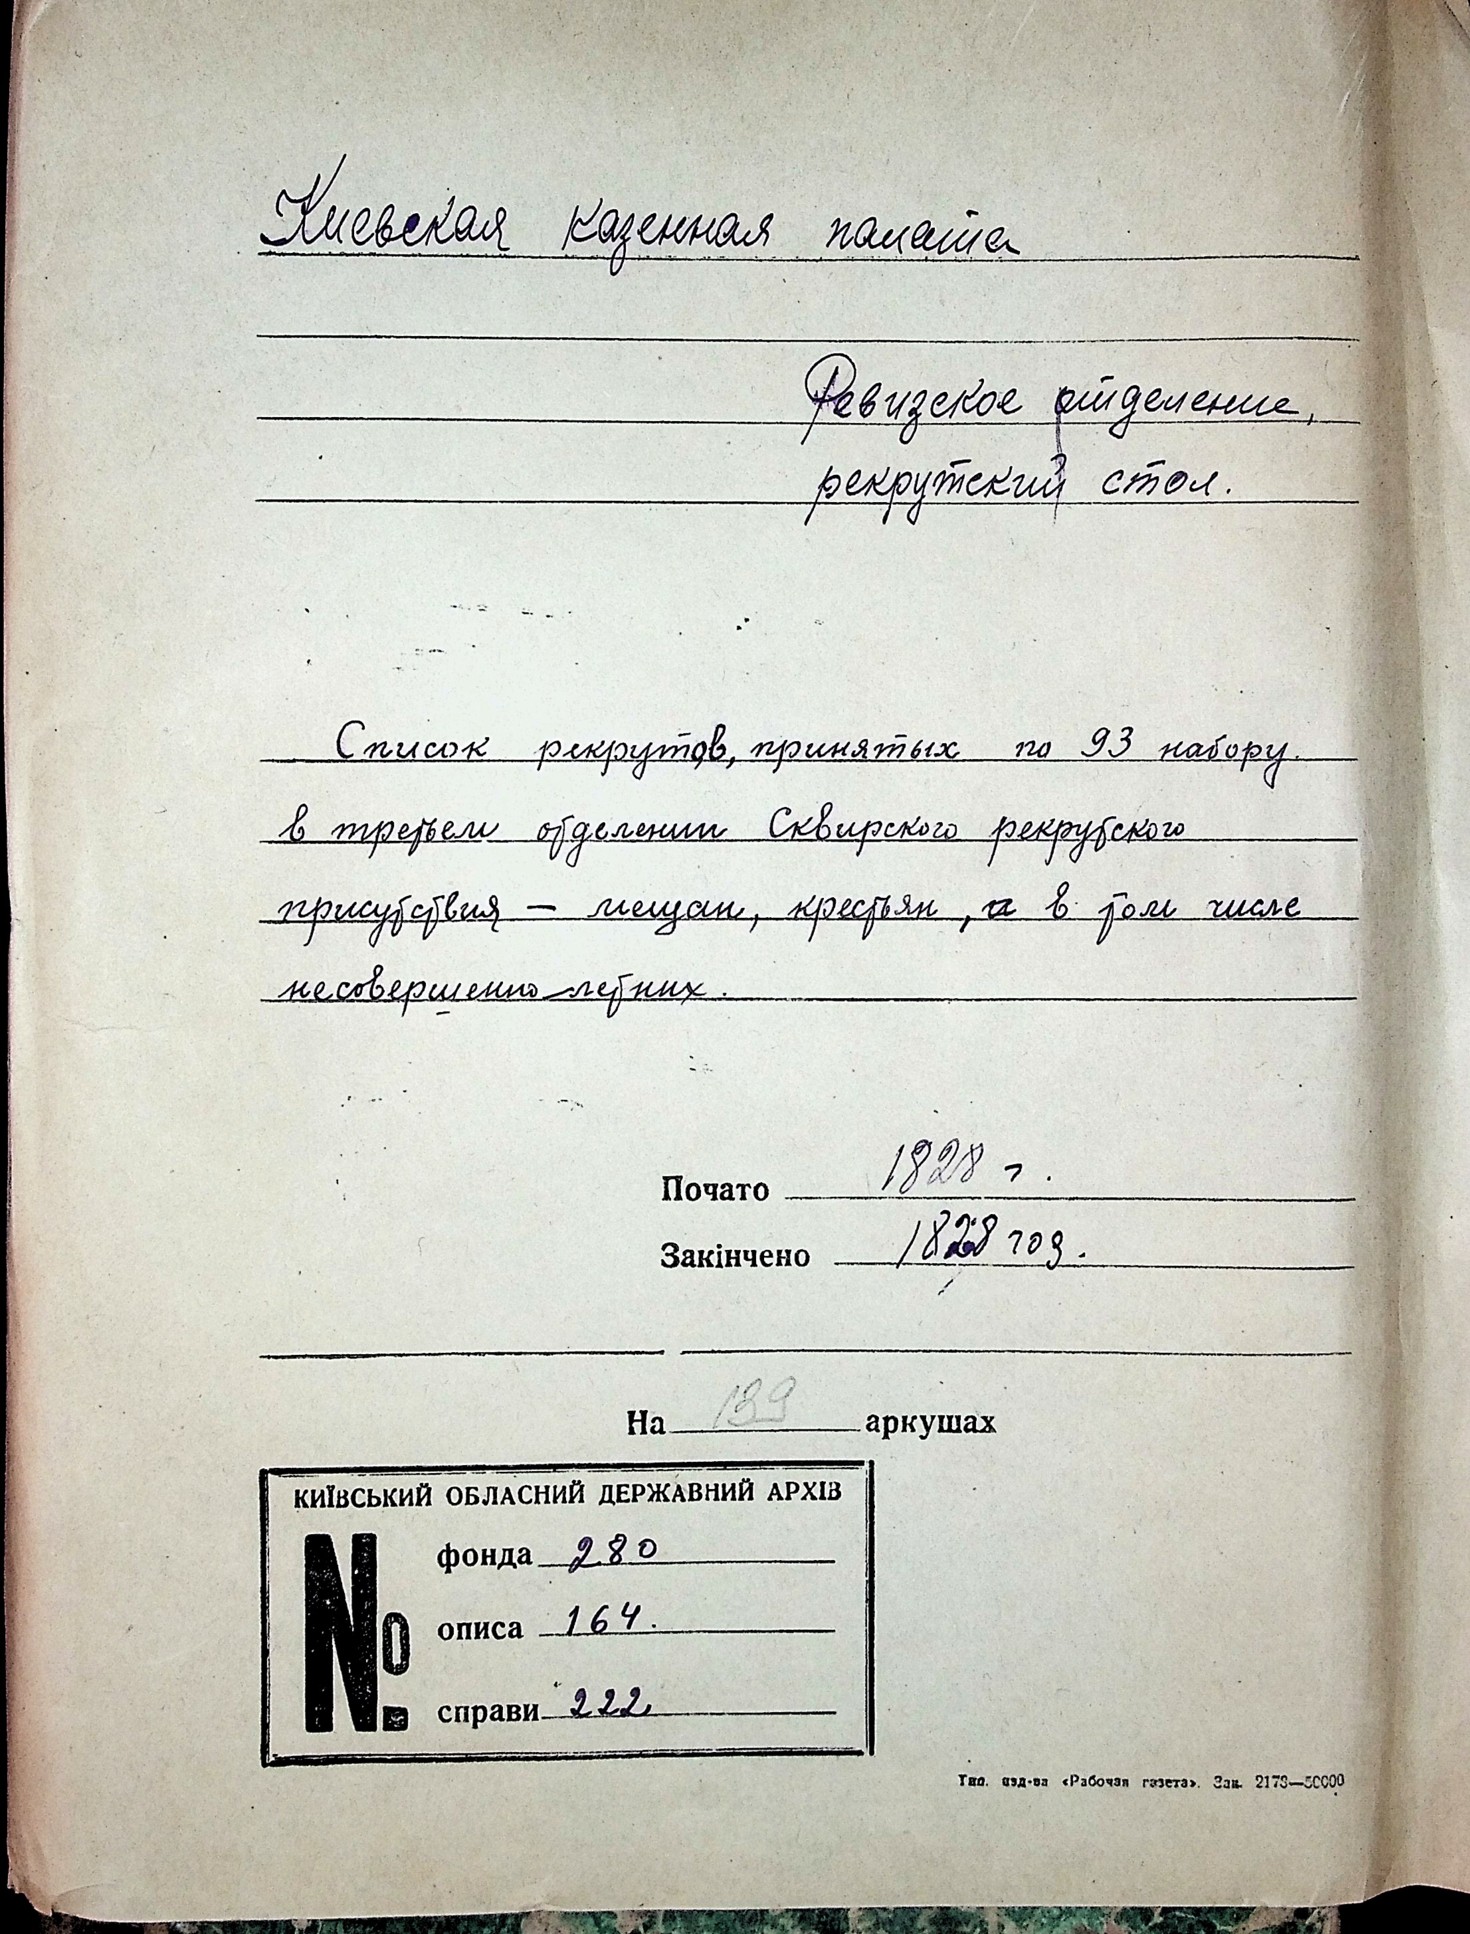 Киевская казенная палата
Ревизское отделение,
рекрутский стол.
Список рекрутов, принятых по 93 набору
в третьем отделении Сквирского рекрутского
присутствия — мещан, крестьян, а в том числе
несовершенно-летних.
Почато 1828 г.
Закінчено 1828 год.
На 139 аркушах
КИЇВСЬКИЙ ОБЛАСНИЙ ДЕРЖАВНИЙ АРХІВ
№
фонда 280
описа 164.
справи 222
Тип. изд-ва «Рабочая газета». Зак. 2173—50000